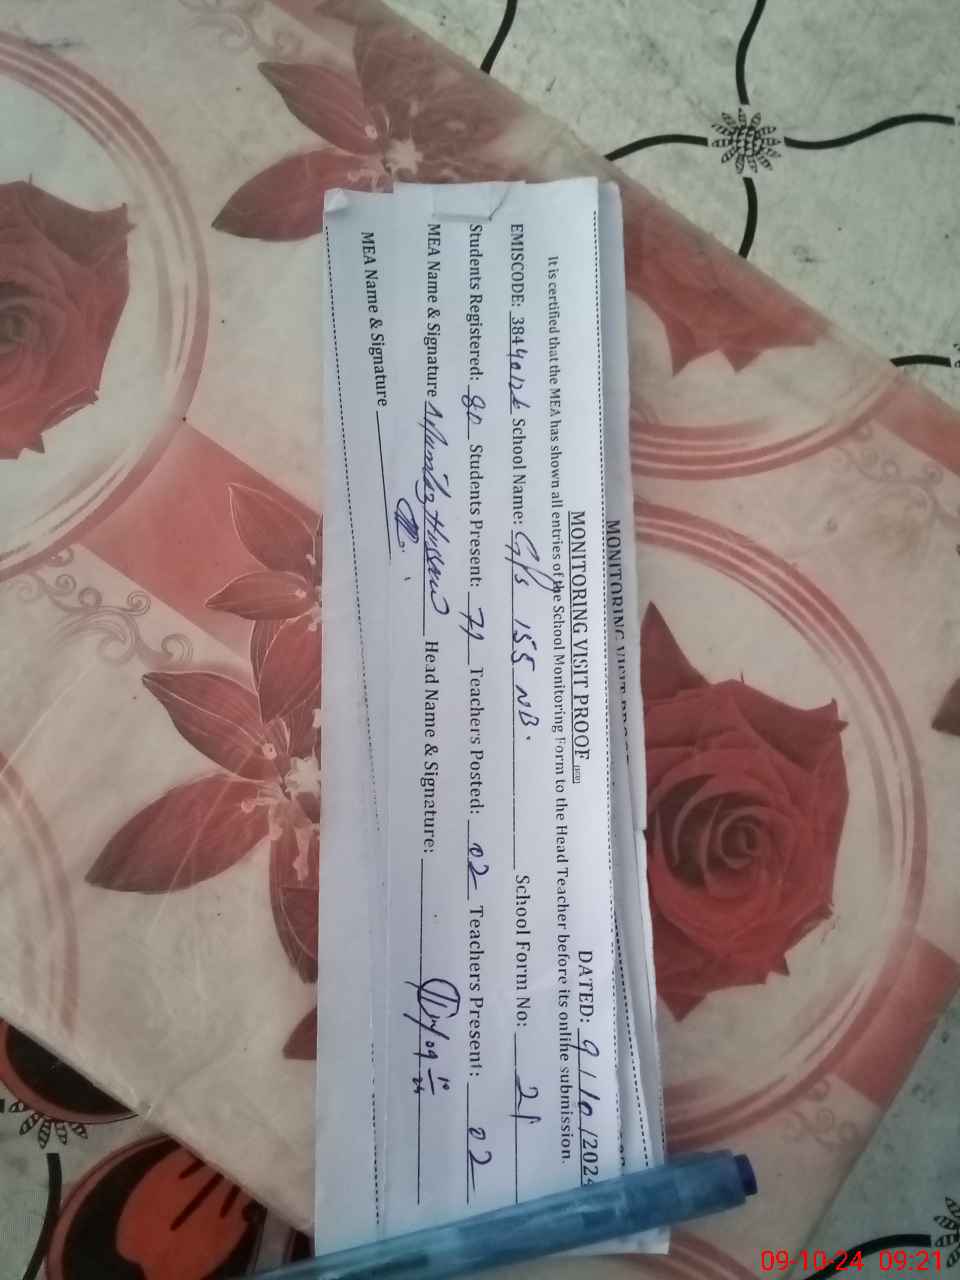 MONITORING VISIT PROOF
MONITORING VISIT PROOF DATED: 9/10/2024
It is certified that the MEA has shown all entries of the School Monitoring Form to the Head Teacher before its online submission.
EMISCODE: 38440126 School Name: G/s 155 NB. School Form No: 21
Students Registered: 80 Students Present: 71 Teachers Posted: 02 Teachers Present: 02
MEA Name & Signature Hussain Head Name & Signature: 09 10 24
MEA Name & Signature
09-10-24 09:21